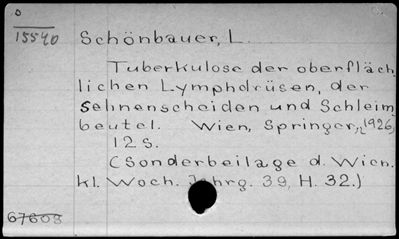 15540 Schönbauer, L.
Tuberkulose der oberfläch
lichen Lymphdrüsen, der
Sehnenscheiden und Schleim
beutel. Wien, Springer, 1926,
12 S.
(Sonderbeilage d. Wien.
kl. Woch. Jahrg. 39, H. 32.)
67608